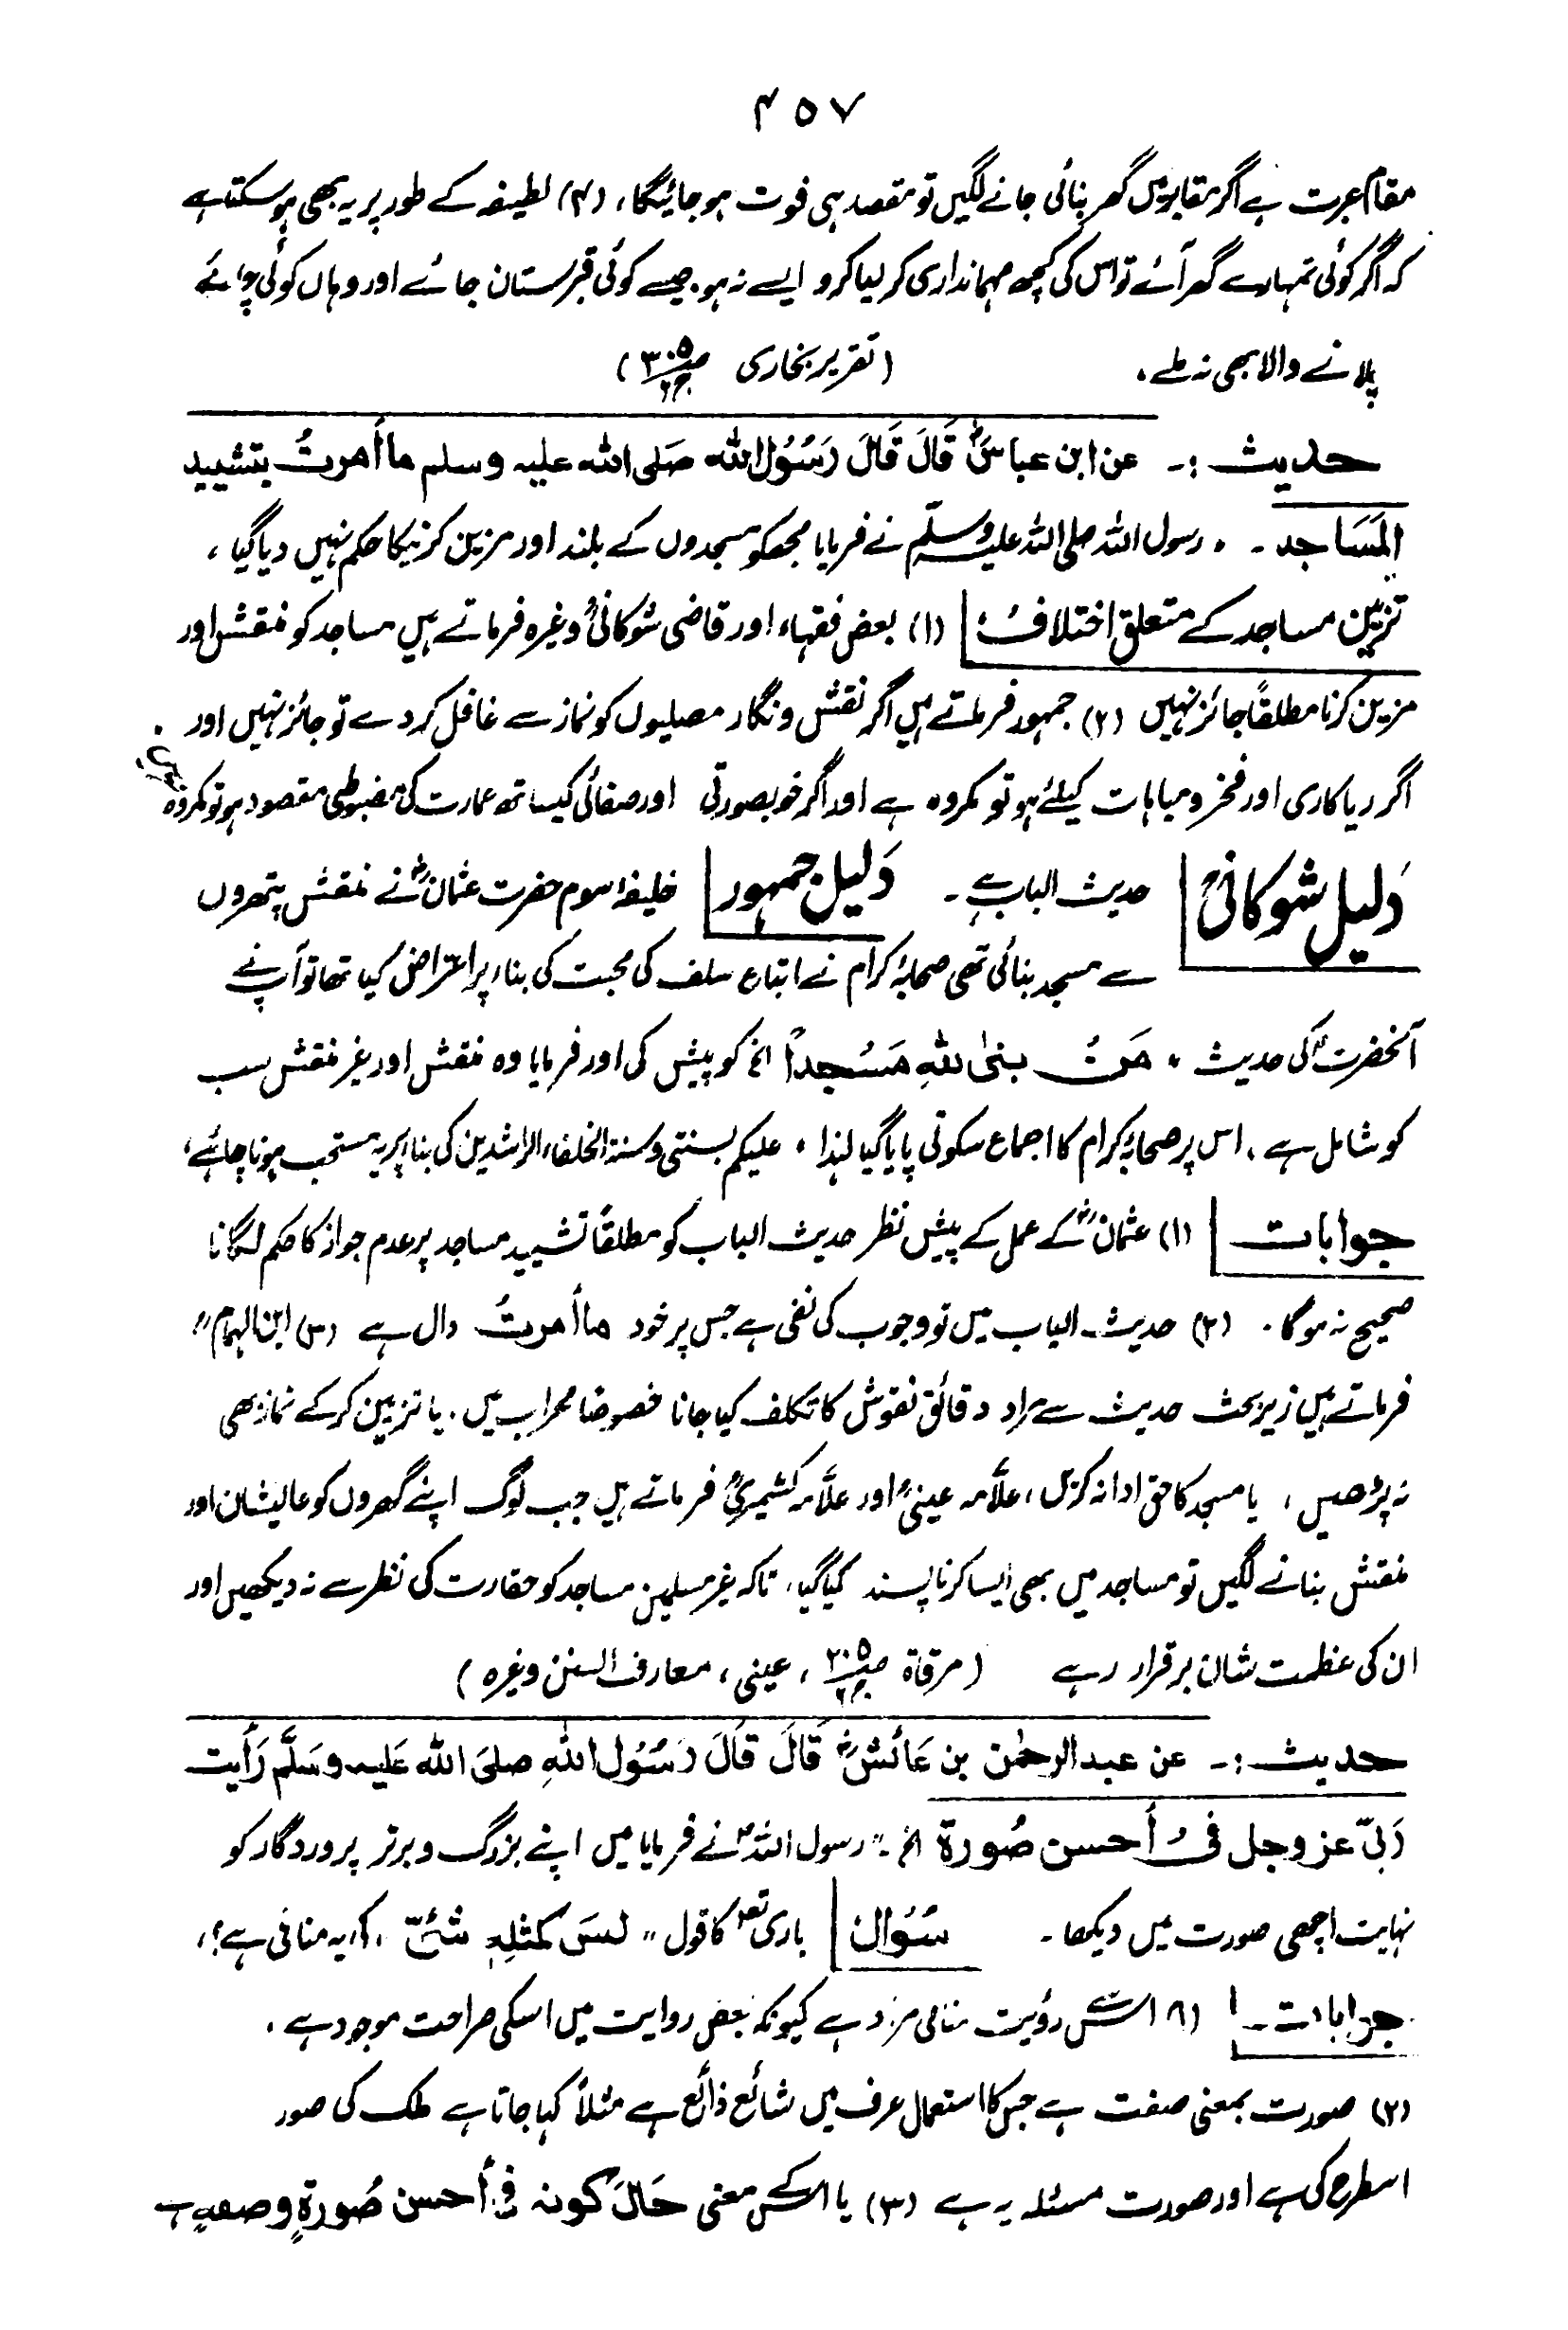 ۴۵۷
مقام عبرت ہے اگر مقابر میں گھر بنائی جانے لگیں تو مقصد ہی فوت ہو جائیگا، (۴) لطیفہ کے طور پر یہ بھی ہو سکتا ہے
کہ اگر کوئی تمہارے گھر آئے تو اس کی کچھ مہمانداری کر لیا کرو ایسے نہ ہو جیسے کوئی قبرستان جائے اور وہاں کوئی چائے
پلانے والا بھی نہ ملے، (تقریر بخاری ص۳۰۵ ج۲)
حدیث :- عن ابن عباسؓ قَالَ قَالَ رَسُوْل اللہ صَلی اللہ علیہ وسلم ما أمرتُ بتشیید
المَسَاجد - ، رسول اللہ صلی اللہ علیہ وسلم نے فرمایا مجھکو مسجدوں کے بلند اور مزین کرنیکا حکم نہیں دیا گیا،
تزیین مساجد کے متعلق اختلاف (۱) بعض فقہاء اور قاضی شوکانیؒ وغیرہ فرماتے ہیں مساجد کو منقش اور
مزین کرنا مطلقاً جائز نہیں (۲) جمہور فرماتے ہیں اگر نقش ونگار مصلیوں کو نماز سے غافل کردے تو جائز نہیں اور
اگر ریاکاری اور فخر ومباہات کیلئے ہو تو مکروہ ہے اور اگر خوبصورتی اور صفائی کیساتھ عمارت کی مضبوطی مقصود ہو تو مکروہ نہیں.
دَلیل شوکانیؒ حدیث الباب ہے - دَلیل جمہور خلیفۂ سوم حضرت عثمانؓ نے منقش پتھروں
سے مسجد بنائی تھی صحابۂ کرام نے اتباع سلف کی محبت کی بناء پر اعتراض کیا تھا تو آپ نے
آنحضرتؐ کی حدیث ، مَنْ بنیٰ للہِ مَسْجداً الخ کو پیش کی اور فرمایا وہ منقش اور غیر منقش سب
کو شامل ہے، اس پر صحابۂ کرام کا اجماع سکوتی پایا گیا لہٰذا ، علیکم بسنتی وسنۃ الخلفاء الراشدین کی بناء پر یہ مستحب ہونا چاہئے،
جوابات (۱) عثمانؓ کے عمل کے پیش نظر حدیث الباب کو مطلقاً تشیید مساجد پر عدم جواز کا حکم لگانا
صحیح نہ ہوگا. (۲) حدیث الباب میں تو وجوب کی نفی ہے جس پر خود ما أمرتُ دال ہے (۳) ابن الہمامؒ
فرماتے ہیں زیر بحث حدیث سے مراد دقائق نقوش کا تکلف کیا جانا خصوصاً محراب میں. یا تزیین کرکے نماز بھی
نہ پڑھیں، یا مسجد کا حق ادا نہ کریں، علّامہ عینیؒ اور علّامہ کشمیریؒ فرماتے ہیں جب لوگ اپنے گھروں کو عالیشان اور
منقش بنانے لگیں تو مساجد میں بھی ایسا کرنا پسند کیا گیا، تاکہ غیر مسلمین مساجد کو حقارت کی نظر سے نہ دیکھیں اور
ان کی عظمت شان برقرار رہے (مرقاۃ ص۲۰۵ ج۲، عینی، معارف السنن وغیرہ)
حدیث :- عن عبد الرحمٰن بن عَائشؓ قَالَ قَالَ رَسُوْل اللہِ صلیَ اللہ عَلیہ وسَلَّم رَأیت
رَبیّ عز وجل فیْ أحسن صُورة الخ. " رسول اللہؐ نے فرمایا میں اپنے بزرگ وبرتر پروردگار کو
نہایت اچھی صورت میں دیکھا - سُوَال باری تعالیٰ کا قول " لیسَ کمثلِہٖ شئیٌ ، کے یہ منافی ہے؟،
جوابات - (۱) اس سے رؤیت منامی مراد ہے کیونکہ بعض روایت میں اسکی صراحت موجود ہے،
(۲) صورت بمعنی صفت ہے جس کا استعمال عرف میں شائع ذائع ہے مثلاً کہا جاتا ہے ملک کی صور
اسطرح کی ہے اور صورت مسئلہ یہ ہے (۳) یا اس کے معنی حَالَ کونہ فی أحسن صُورةٍ وصفةٍ ہے